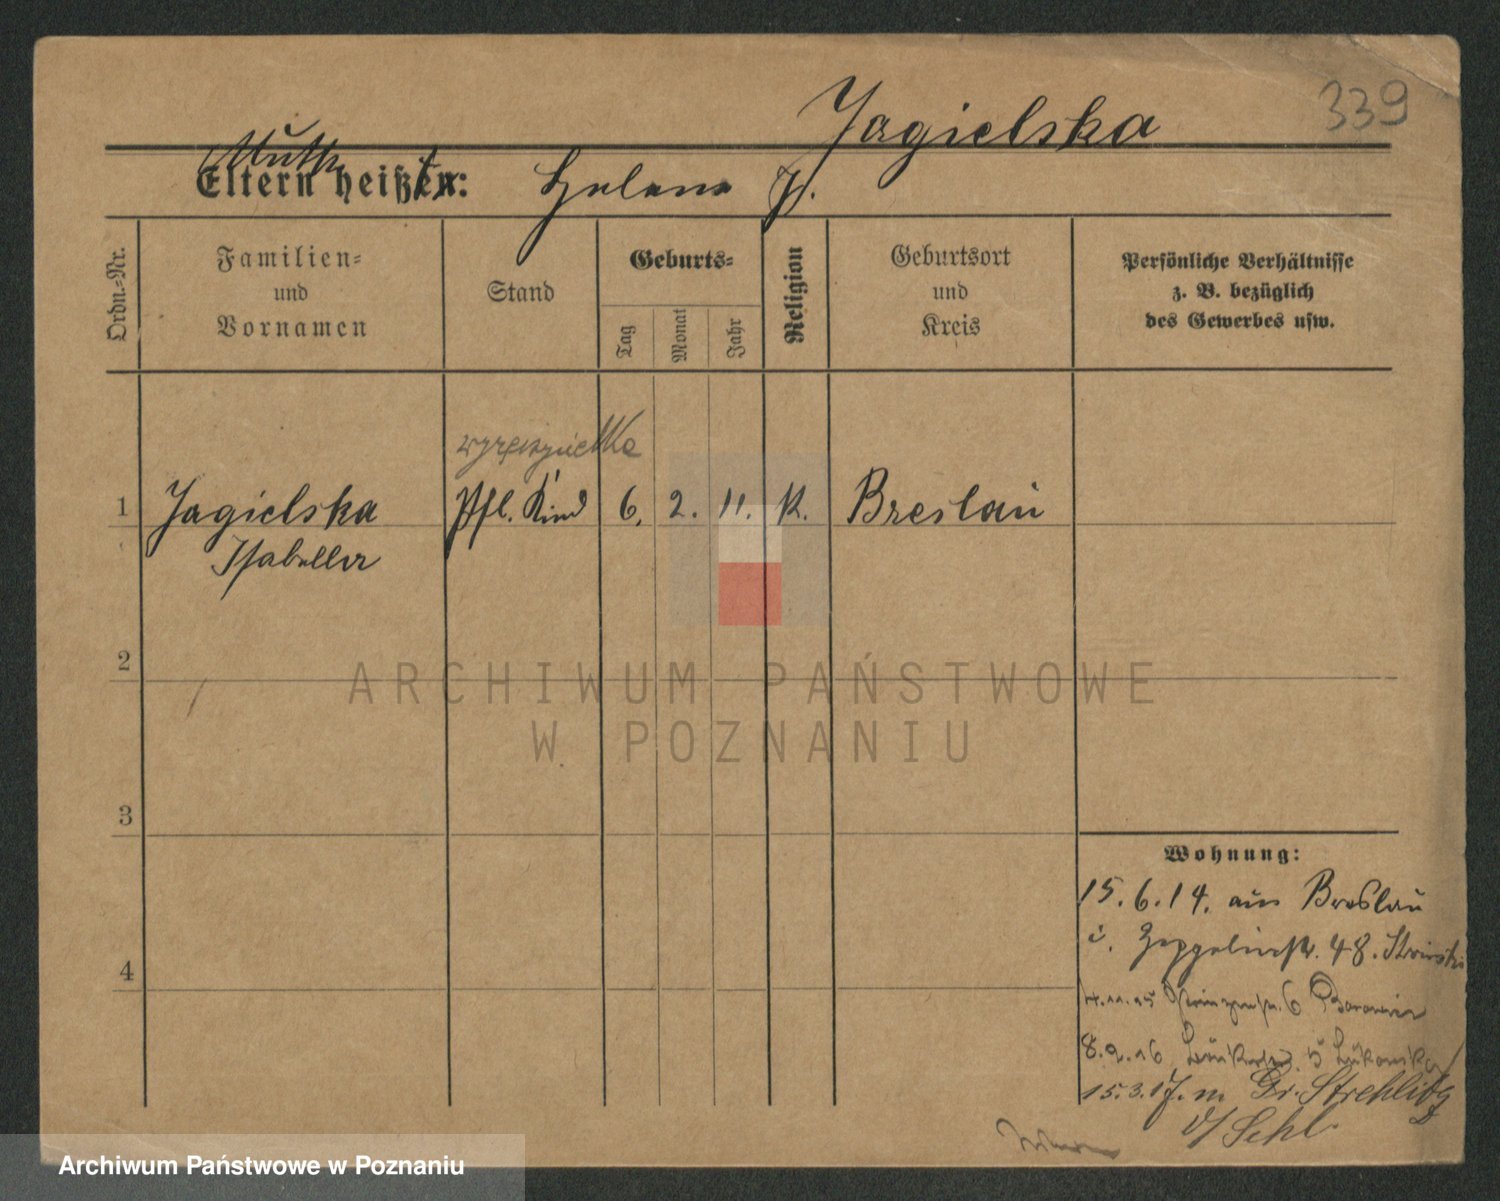 339
Jagielska
Mutter
Eltern heißen: Helene J.
Ordn.=Nr.
Familien=
und
Vornamen
Stand
Geburts=
Tag
Monat
Jahr
Religion
Geburtsort
und
Kreis
Persönliche Verhältnisse
z. B. bezüglich
des Gewerbes usw.
1
Jagielska
Isabella
Pfl. Kind
6.
2.
11.
K.
Breslau
2
3
4
Wohnung:
15.6.14. aus Breslau
Zeppelinstr. 48.
4.11.15 6
8.2.16 5
15.3.17. n. Gr. Strehlitz
/Schl.
ARCHIWUM PAŃSTWOWE
W POZNANIU
Archiwum Państwowe w Poznaniu